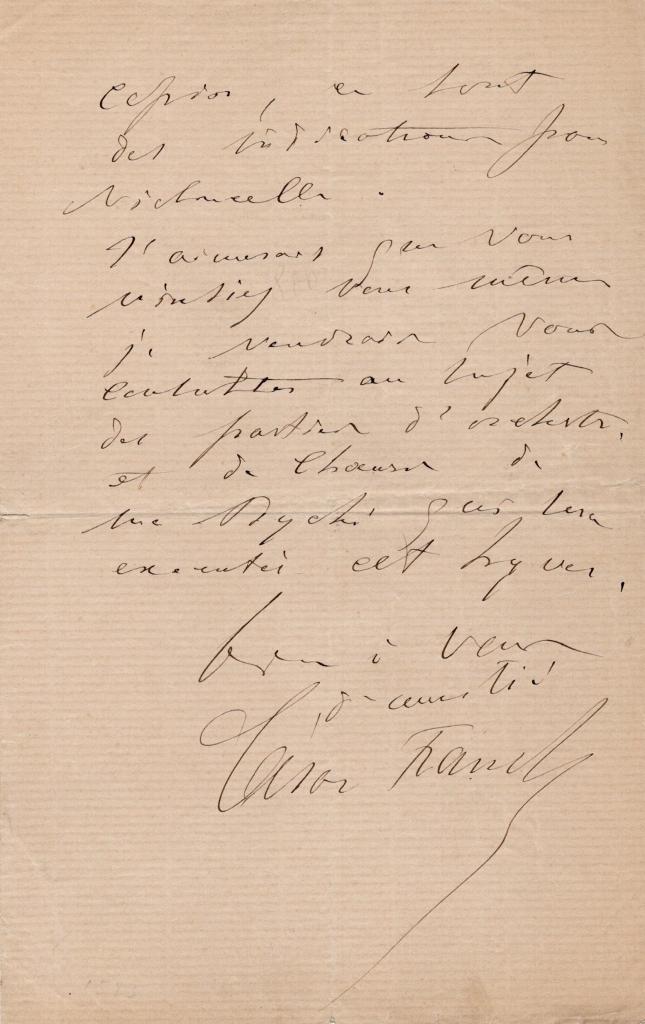 copies, ce sont
des indications pour
Violoncelle.
J'aimerais que vous
vinssiez vous même
je voudrais vous
consulter au sujet
des parties d'orchestre
et de Choeurs de
ma Psyché qui sera
executée cet hyver.
bien à vous
d'amitié
César Franck